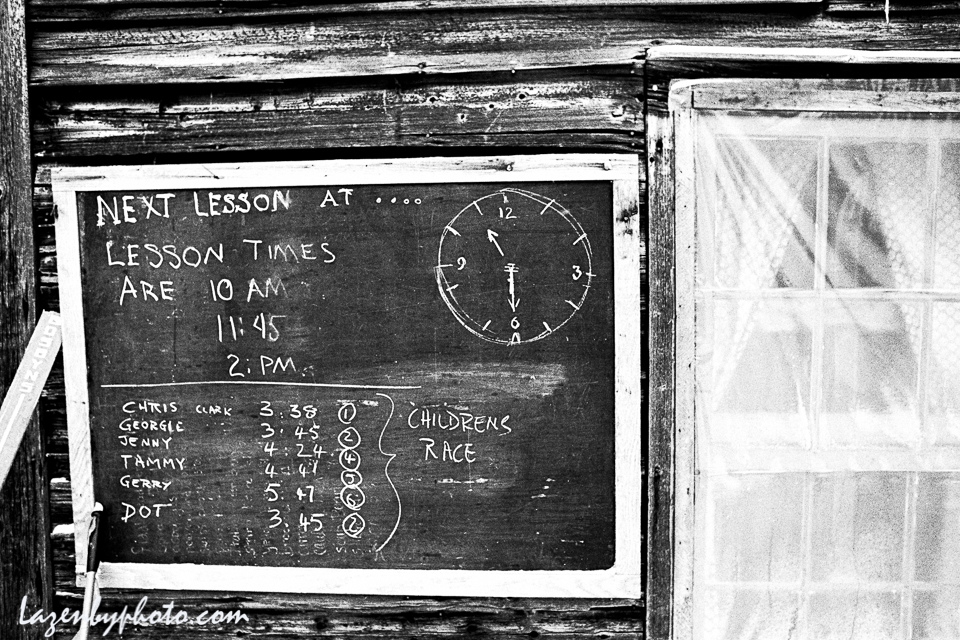 NEXT LESSON AT ....
LESSON TIMES
ARE 10 AM
11:45
2:PM.
12
9
3
6
CHRIS CLARK 3:38 1
GEORGIE 3:45 2
JENNY 4:24 4
TAMMY 4:41
GERRY 5:47 6
DOT 3:45 2
CHILDRENS
RACE
Lazenbyphoto.com